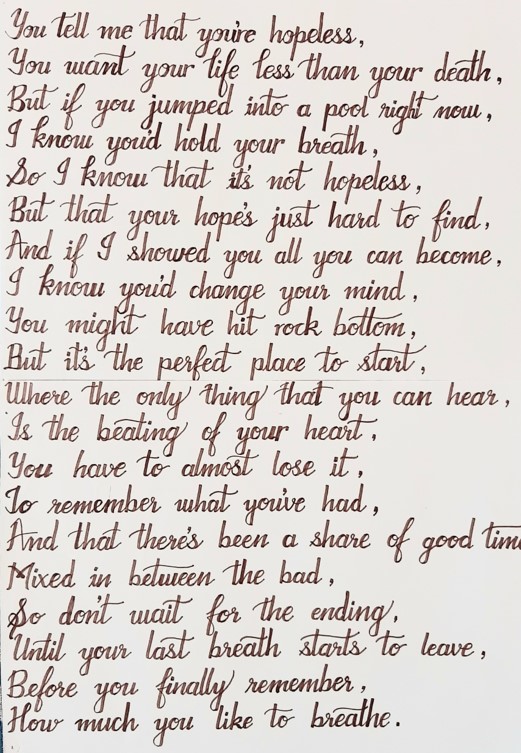 You tell me that you're hopeless,
You want your life less than your death,
But if you jumped into a pool right now,
I know you'd hold your breath,
So I know that it's not hopeless,
But that your hope's just hard to find,
And if I showed you all you can become,
I know you'd change your mind,
You might have hit rock bottom,
But it's the perfect place to start,
Where the only thing that you can hear,
Is the beating of your heart,
You have to almost lose it,
To remember what you've had,
And that there's been a share of good time
Mixed in between the bad,
So don't wait for the ending,
Until your last breath starts to leave,
Before you finally remember,
How much you like to breathe.